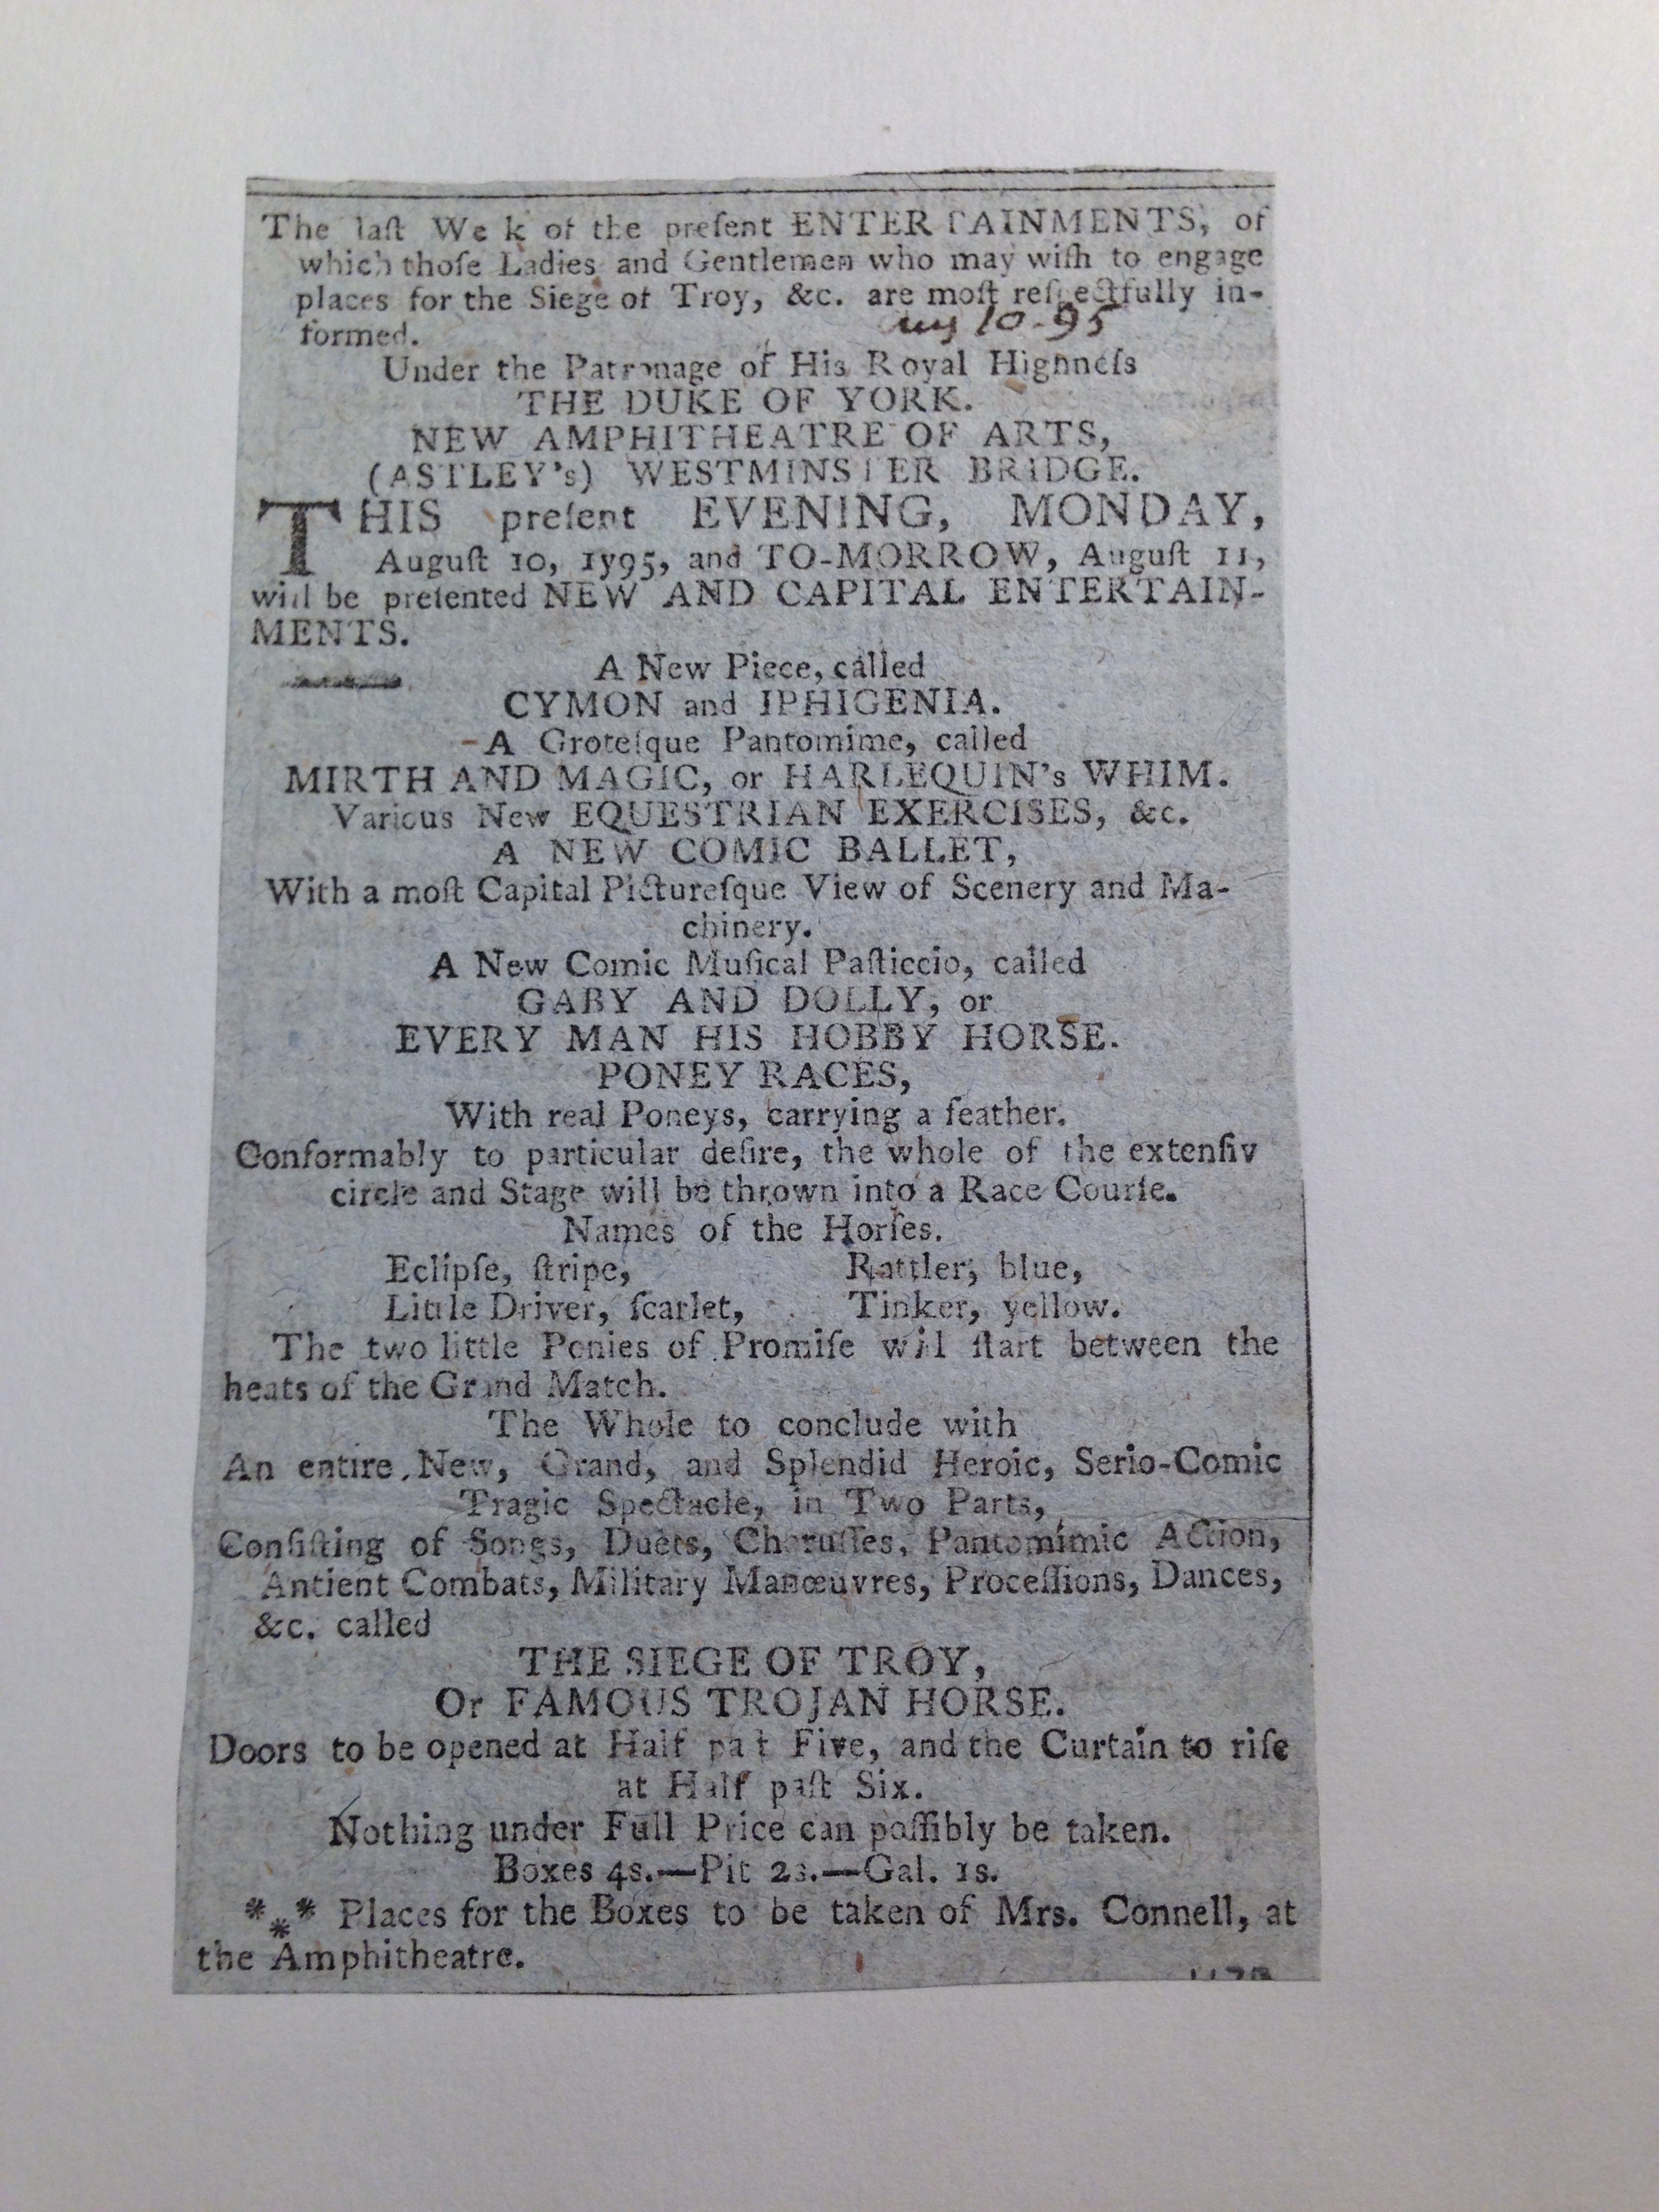 The laſt We k of the preſent ENTERTAINMENTS, of
which thoſe Ladies and Gentlemen who may wiſh to engage
places for the Siege of Troy, &c. are moſt reſpectfully in-
formed.
Aug 10-95
Under the Patronage of His Royal Highneſs
THE DUKE OF YORK.
NEW AMPHITHEATRE OF ARTS,
(ASTLEY's) WESTMINSTER BRIDGE.
THIS preſent EVENING, MONDAY,
Auguſt 10, 1795, and TO-MORROW, Auguſt 11,
will be preſented NEW AND CAPITAL ENTERTAIN-
MENTS.
A New Piece, called
CYMON and IPHIGENIA.
A Groteſque Pantomime, called
MIRTH AND MAGIC, or HARLEQUIN's WHIM.
Various New EQUESTRIAN EXERCISES, &c.
A NEW COMIC BALLET,
With a moſt Capital Pictureſque View of Scenery and Ma-
chinery.
A New Comic Muſical Paſticcio, called
GABY AND DOLLY, or
EVERY MAN HIS HOBBY HORSE.
PONEY RACES,
With real Poneys, carrying a feather.
Conformably to particular deſire, the whole of the extenſiv
circle and Stage will be thrown into a Race Courſe.
Names of the Horſes.
Eclipſe, ſtripe, Rattler, blue,
Little Driver, ſcarlet, Tinker, yellow.
The two little Ponies of Promiſe will ſtart between the
heats of the Grand Match.
The Whole to conclude with
An entire New, Grand, and Splendid Heroic, Serio-Comic
Tragic Spectacle, in Two Parts,
Conſiſting of Songs, Duets, Choruſſes, Pantomimic Action,
Antient Combats, Military Manœuvres, Proceſſions, Dances,
&c. called
THE SIEGE OF TROY,
Or FAMOUS TROJAN HORSE.
Doors to be opened at Half pa t Five, and the Curtain to riſe
at Half paſt Six.
Nothing under Full Price can poſſibly be taken.
Boxes 4s.—Pit 2s.—Gal. 1s.
*** Places for the Boxes to be taken of Mrs. Connell, at
the Amphitheatre.